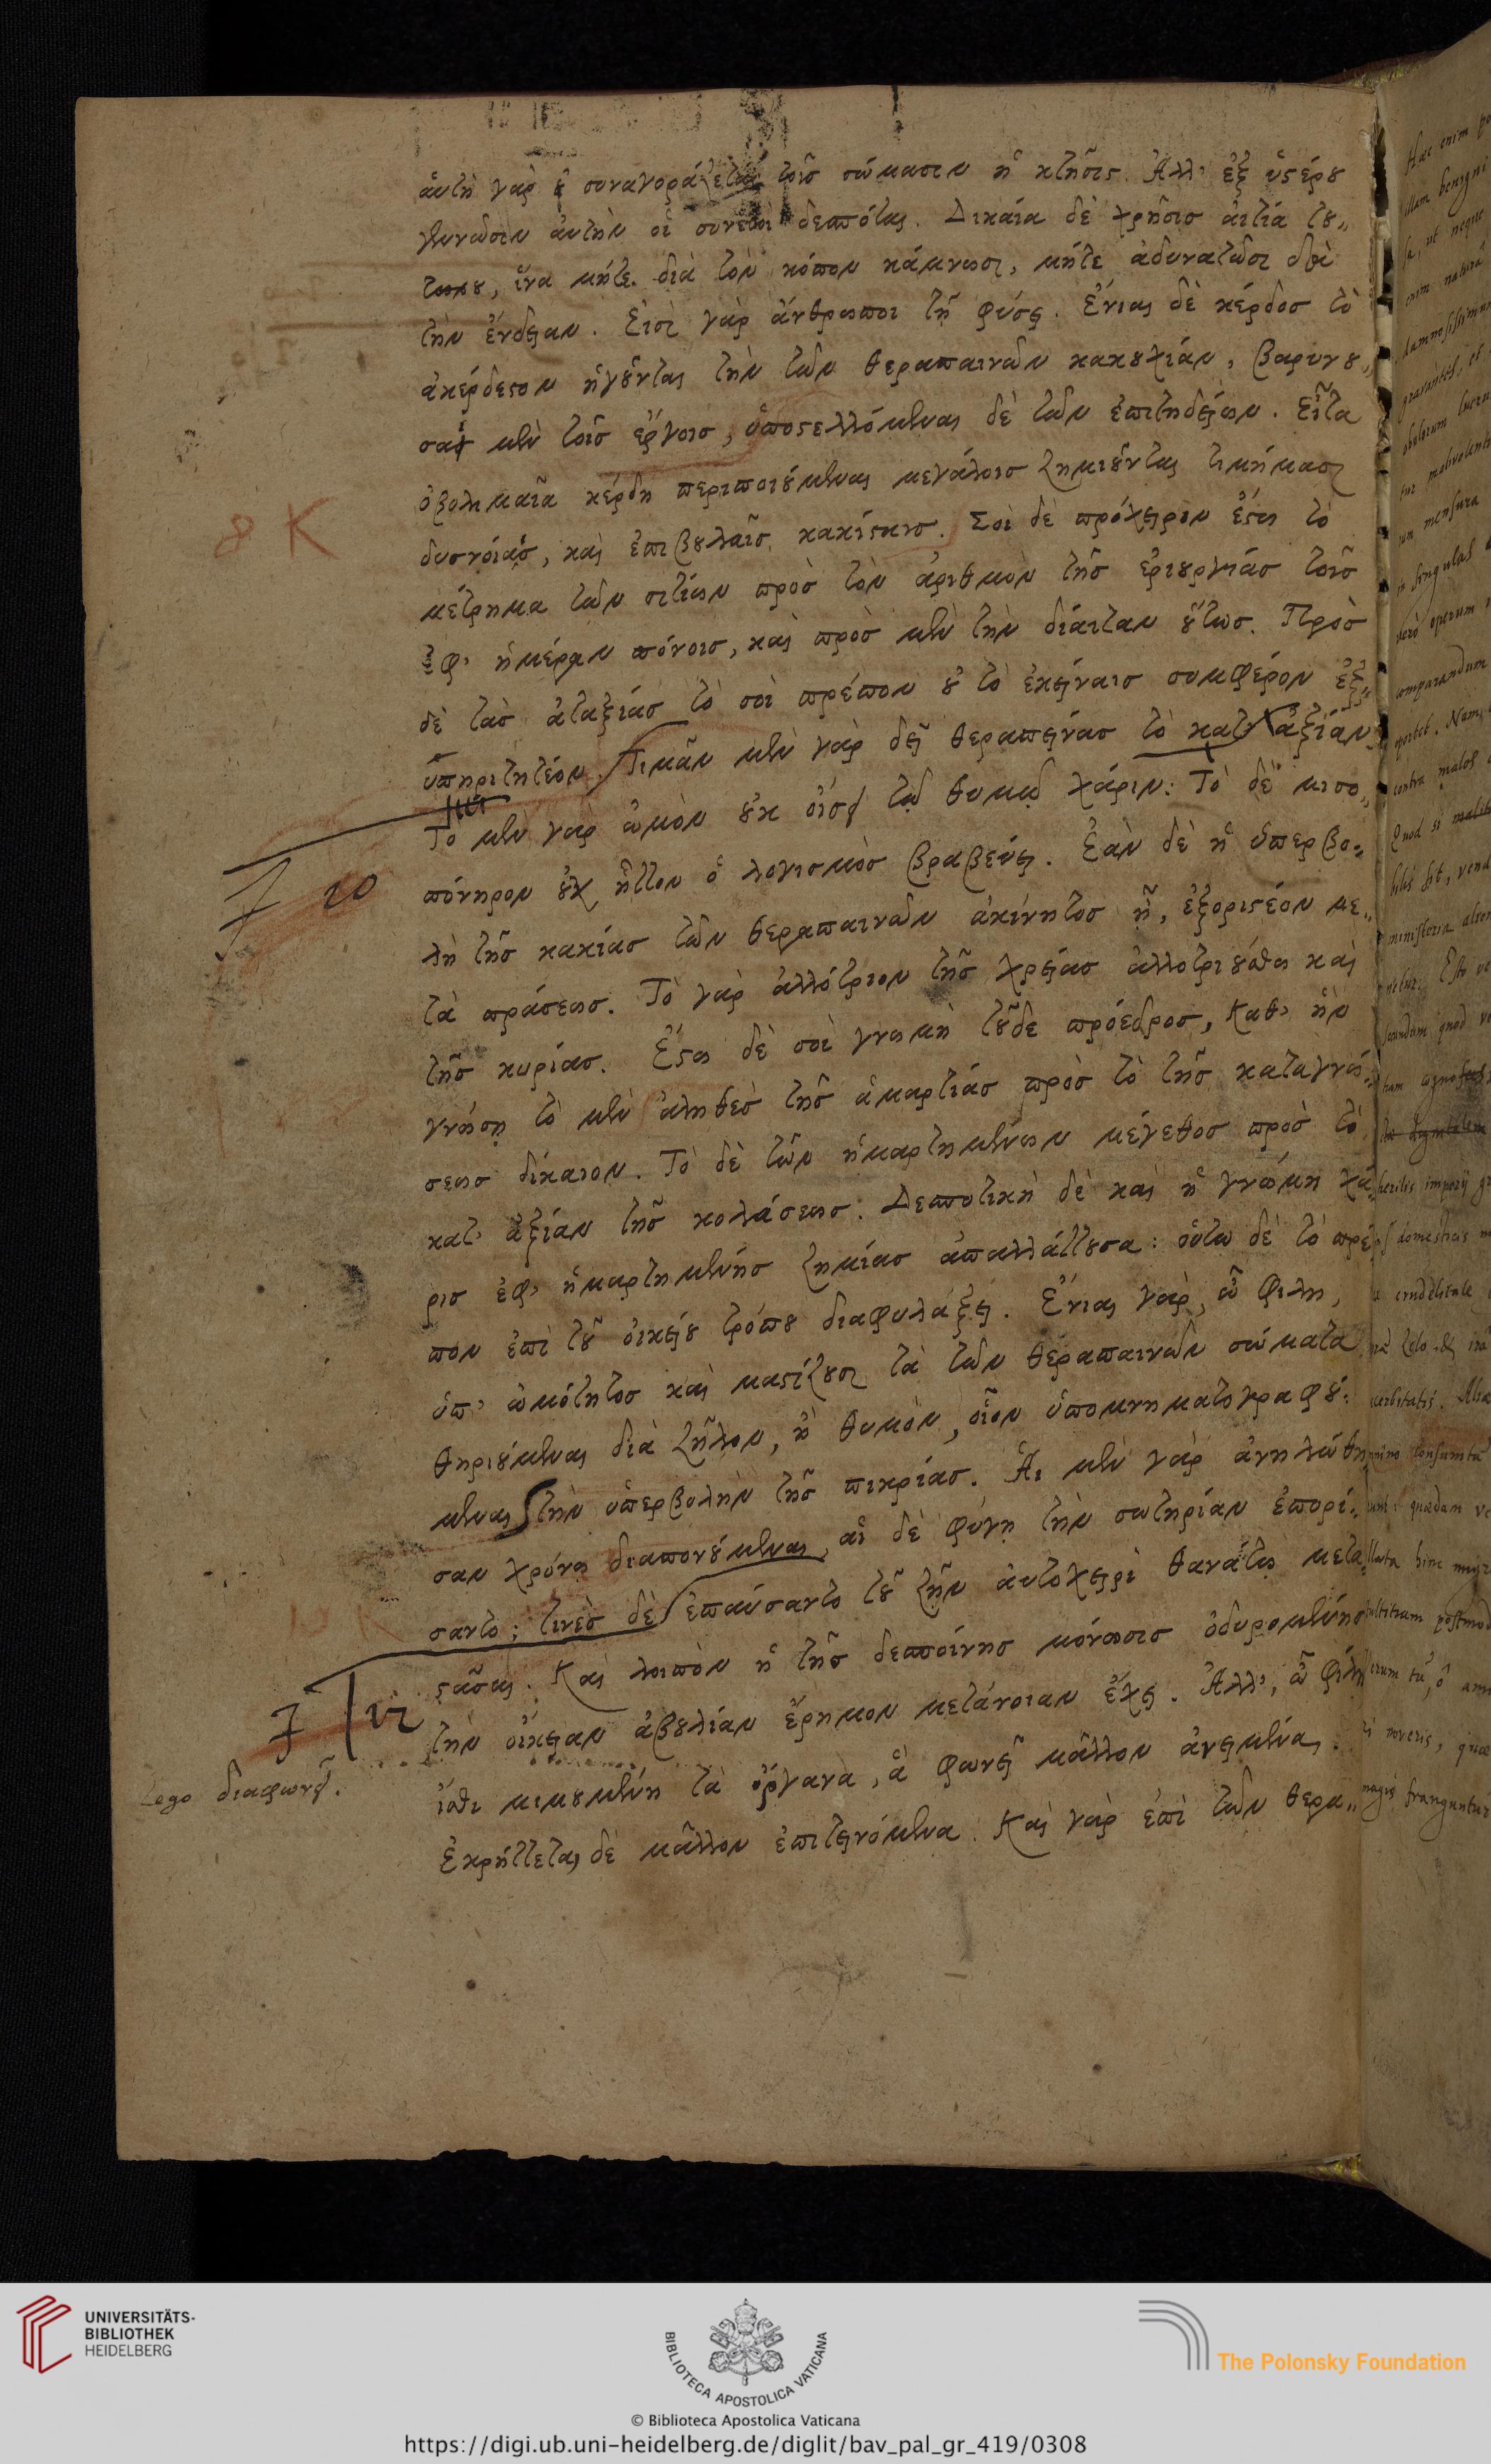 αὕτη γὰρ οὐ συναγοράζεται τοῖς σώμασιν ἡ κτῆσις. Ἀλλ' ἐξ ὑστέρου
γεννῶσιν αὐτὴν οἱ συνετοὶ δεσπόται. Δικαία δὲ χρῆσις αἰτία τού„
του, ἵνα μήτε διὰ τὸν κόπον κάμνωσι, μήτε ἀδυνατῶσι διὰ
τὴν ἔνδειαν. Εἰσὶ γὰρ ἄνθρωποι τῇ φύσει. Ἔνιαι δὲ κέρδος τὸ
ἀκέρδεστον ἡγοῦνται τὴν τῶν θεραπαινῶν κακουχίαν, βαρύνου„
σαι μὲν τοῖς ἔργοις, ὑποστελλόμεναι δὲ τῶν ἐπιτηδείων. Εἶτα
ὀβολιμαῖα κέρδη περιποιούμεναι μεγάλοις ζημιοῦνται τιμήμασι
δυσνοίαις, καὶ ἐπιβουλαῖς κακίσταις. Σοὶ δὲ πρόχειρον ἔσται τὸ
μέτρημα τῶν σιτίων πρὸς τὸν ἀριθμὸν τῆς ἐριουργίας τοῖς
ἐφ' ἡμέραν πόνοις, καὶ πρὸς μὲν τὴν δίαιταν οὕτως. Πρὸς
δὲ τὰς ἀταξίας τὸ σοὶ πρέπον οὐ τὸ ἐκείναις συμφέρον ἐξ„
ὑπηρετητέον. Τιμᾶν μὲν γὰρ δεῖ θεραπείνας τὸ κατ' ἀξίαν
Τὸ μὲν γὰρ ὠμὸν οὐκ οἴσει τῷ θυμῷ χάριν: Τὸ δὲ μισο„
πόνηρον οὐχ ἧττον ὁ λογισμὸς βραβεύει. Ἐὰν δὲ ἡ ὑπερβο„
λὴ τῆς κακίας τῶν θεραπαινῶν ἀκίνητος ᾖ, ἐξοριστέον με„
τὰ πράσεως. Τὸ γὰρ ἀλλότριον τῆς χρείας ἀλλοτριούσθω καὶ
τῆς κυρίας. Ἔστω δὲ σοὶ γνώμη τοῦδε πρόεδρος, Καθ' ἣν
γνώσῃ τὸ μὲν ἀληθὲς τῆς ἁμαρτίας πρὸς τὸ τῆς καταγνώ„
σεως δίκαιον. Τὸ δὲ τῶν ἡμαρτημένων μέγεθος πρὸς τὸ
κατ' ἀξίαν τῆς κολάσεως. Δεσποτικὴ δὲ καὶ ἡ γνώμη χά„
ρις ἐφ' ἡμαρτημένης ζημίας ἀπαλλάττουσα: οὕτω δὲ τὸ πρέ„
πον ἐπὶ τοῦ οἰκείου τρόπου διαφυλάξει. Ἔνιαι γὰρ, ὦ φίλη,
ὑπ' ὠμότητος καὶ μαστίζουσι τὰ τῶν θεραπαινῶν σώματα
θηριούμεναι διὰ ζῆλον, ἢ θυμὸν, οἷον ὑπομνηματογραφού„
μεναι τὴν ὑπερβολὴν τῆς πικρίας. Αἱ μὲν γὰρ ἀνηλώθη
σαν χρόνῳ διαπονούμεναι, αἱ δὲ φύγῃ τὴν σωτηρίαν ἐπορί„
σαντο: τινὲς δὲ ἐπαύσαντο τοῦ ζῆν αὐτόχειρι θανάτῳ μετα„
στᾶσαι. Καὶ λοιπὸν ἡ τῆς δεσποίνης μόνωσις ὀδυρομένης
τὴν οἰκείαν ἀβουλίαν ἔρημον μετάνοιαν ἔχει. Ἀλλ', ὦ φίλη
ἴσθι μιμουμένη τὰ ὄργανα, ἃ φωνεῖ μᾶλλον ἀνειμένα,
Ἐκρήττεται δὲ μᾶλλον ἐπιτεινόμενα. Καὶ γὰρ ἐπὶ τῶν θερα„
8 K
J 10
J 12
Lego διαφωνεῖ.
UNIVERSITÄTS-
BIBLIOTHEK
HEIDELBERG
BIBLIOTECA APOSTOLICA VATICANA
The Polonsky Foundation
© Biblioteca Apostolica Vaticana
https://digi.ub.uni-heidelberg.de/diglit/bav_pal_gr_419/0308